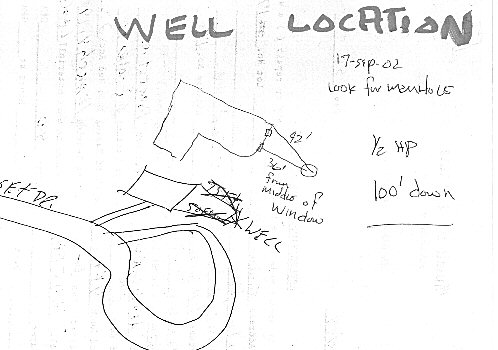 WELL LOCATION
17-Sep-02
Look for manhole
42'
36'
from
middle of
Window
1/2 HP
100' down
WELL